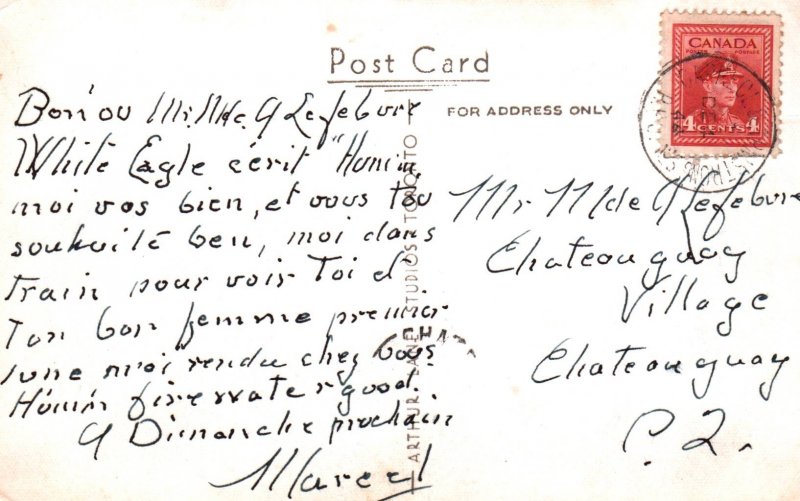 Post Card
FOR ADDRESS ONLY
CANADA
POSTES POSTAGE
4 CENTS 4
Bon'ou Mr. Mde. A Lefebvre
White Eagle écrit "Humm,
moi vas bien, et vous tou
souhaité ben, moi dans
train pour voir Toi d
Ton bon femme premier
lune moi rendu chez vous
Humm firewater good.
A Dimanche prochain
Marcel
Mr Mde A Lefebvre
Chateauguay
Village
Chateauguay
P.Q.
ARTHUR LANE STUDIOS TORONTO
CHA